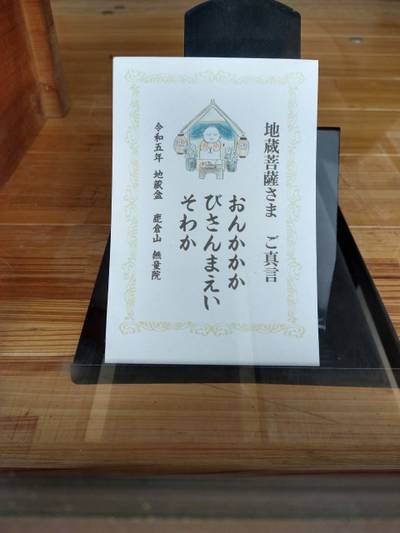 地蔵菩薩さま　ご真言
おんかかか
びさんまえい
そわか
令和五年　地蔵盆　鹿倉山　無量院